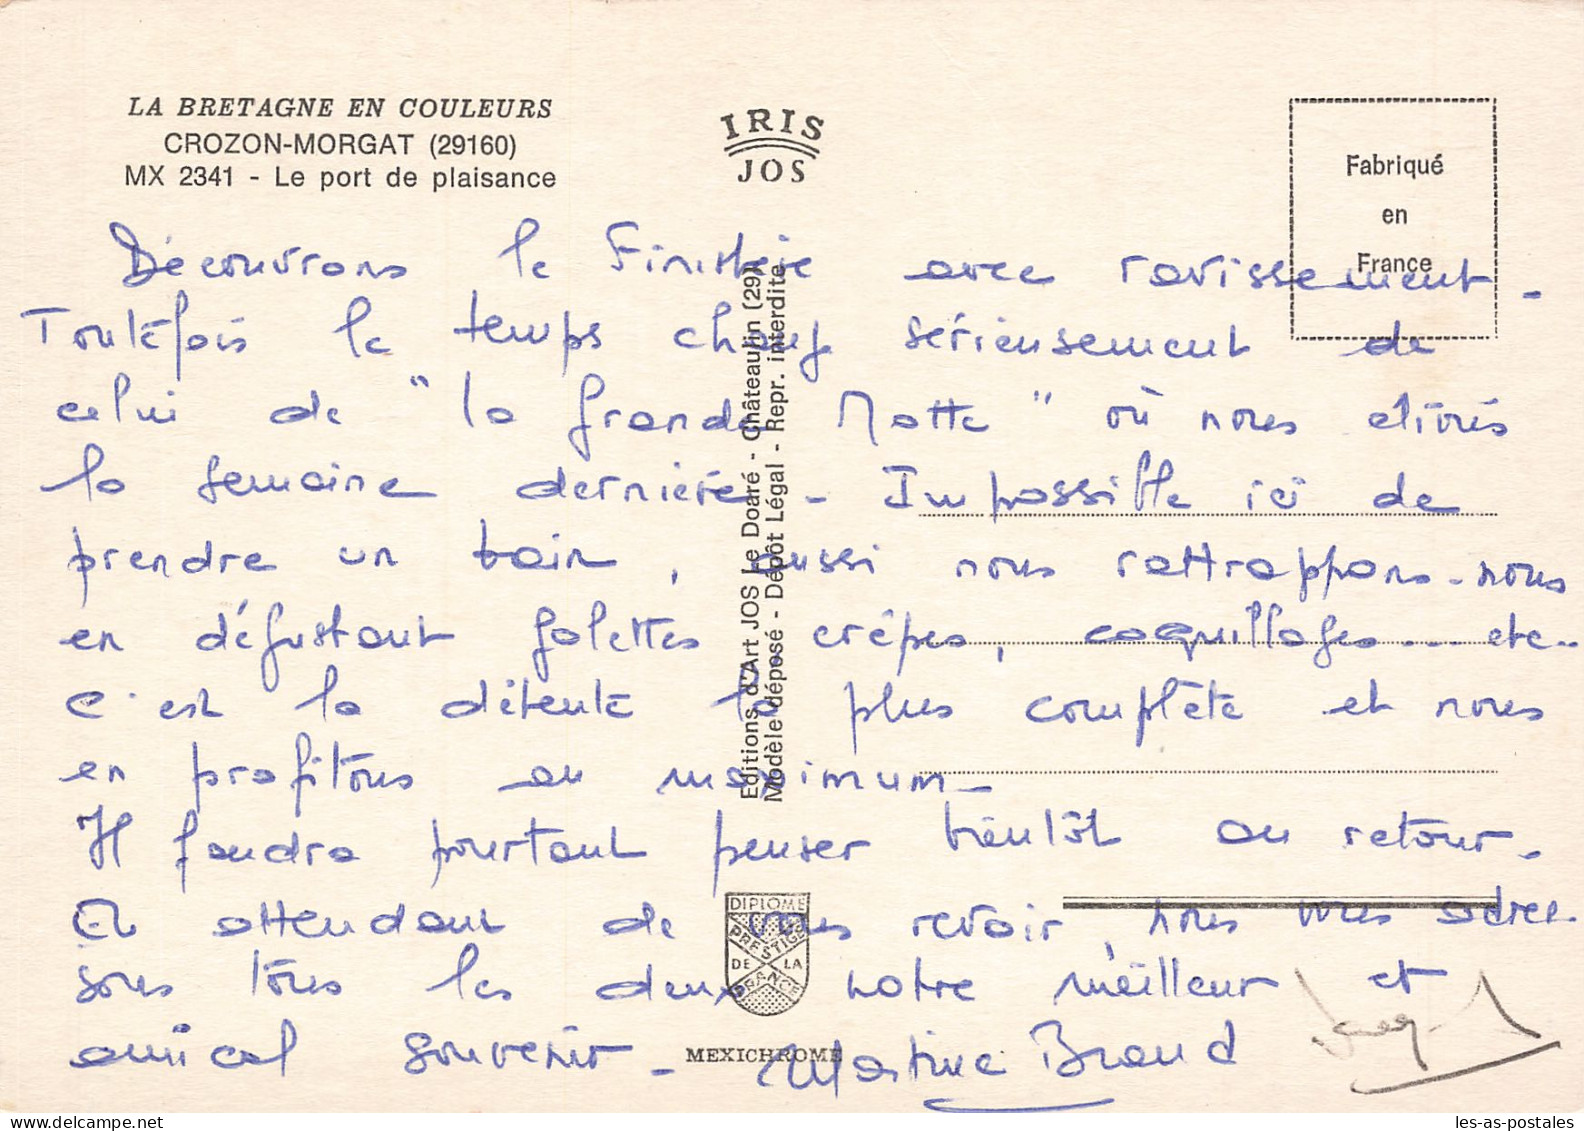 LA BRETAGNE EN COULEURS
CROZON-MORGAT (29160)
MX 2341 - Le port de plaisance
IRIS
JOS
Fabriqué
en
France
Editions d'Art JOS Le Doaré - Châteaulin (29)
Modèle déposé - Dépôt Légal - Repr. interdite
Découvrons le Finistère avec ravissement.
Toutefois le temps change sérieusement de
celui de "la Grande Motte" où nous étions
la semaine dernière. Impossible ici de
prendre un bain, aussi nous rattrappons-nous
en dégustant galettes crêpes, coquillages... etc..
C'est la détente la plus complète et nous
en profitons au maximum.
Il faudra pourtant penser bientôt au retour.
En attendant de vous revoir, nous vous adres-
sons tous les deux notre meilleur et
amical souvenir. Martine Braud
DIPLOME
PRESTIGE
DE LA
FRANCE
MEXICHROME
les-as-postales